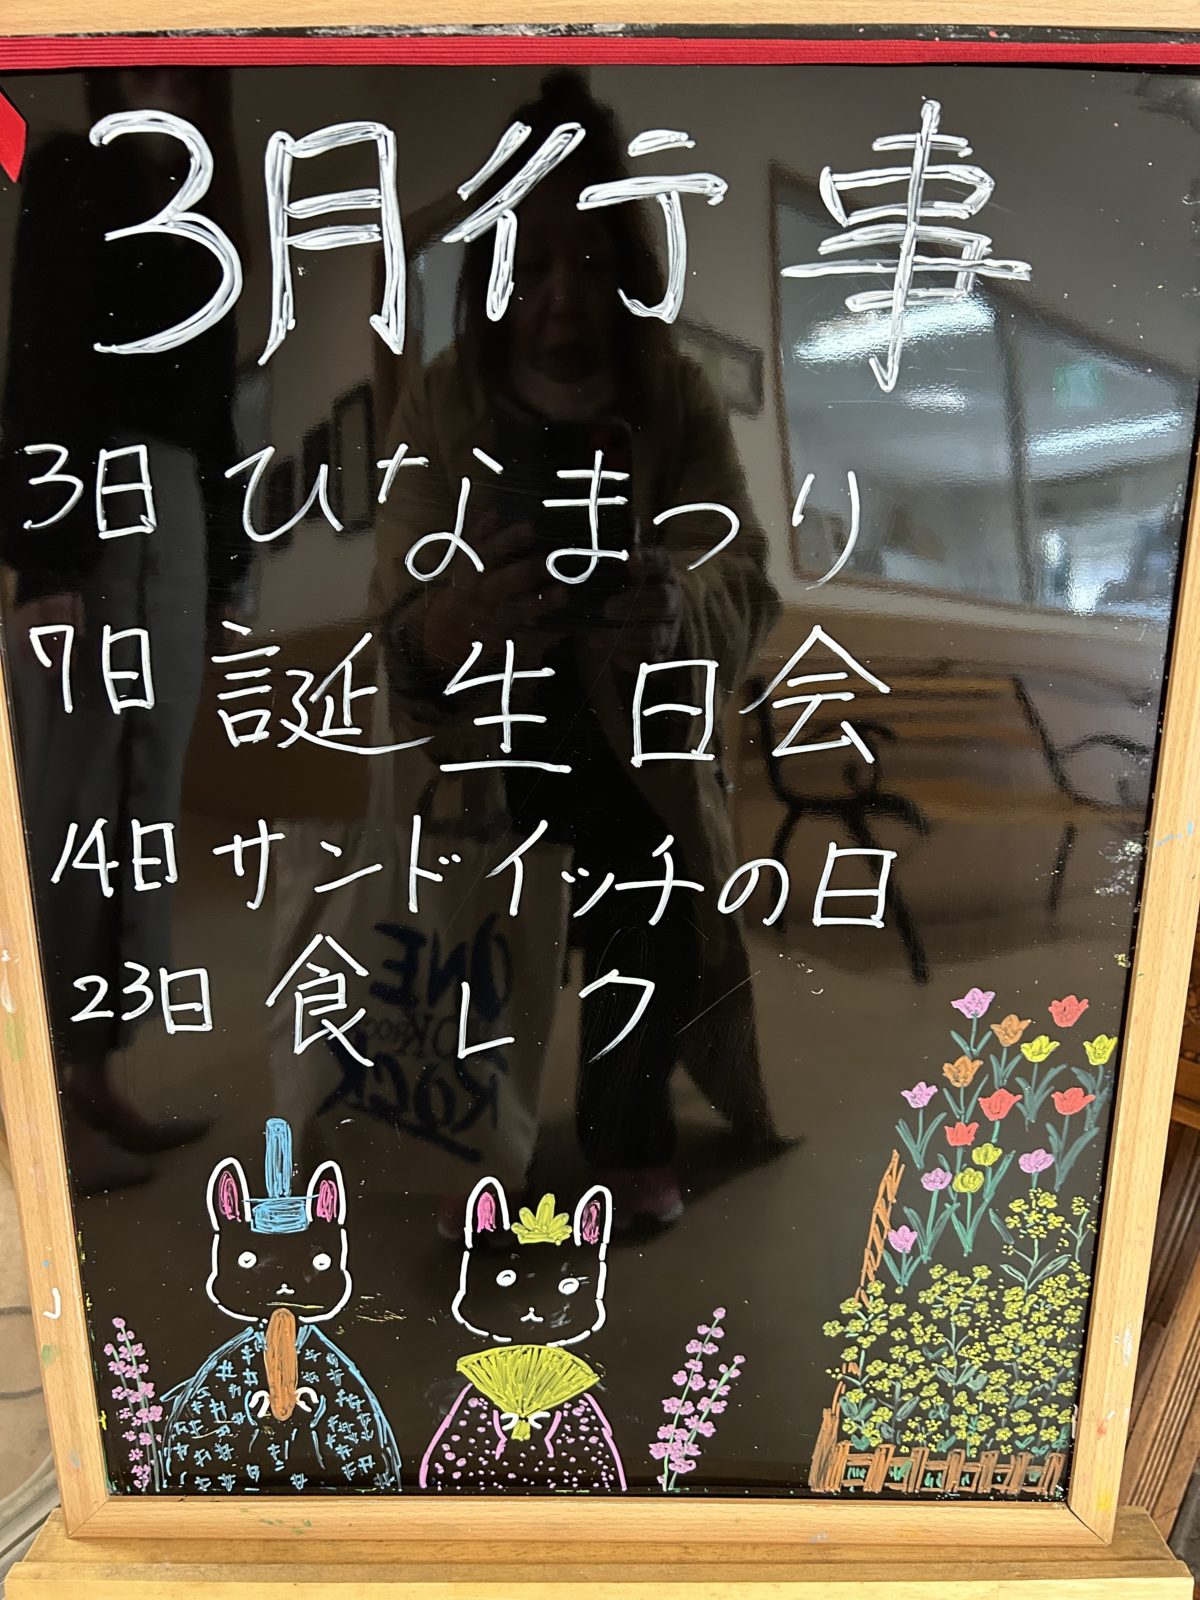 3月行事
3日 ひなまつり
7日 誕生日会
14日 サンドイッチの日
23日 食レク
ONE
ROCK